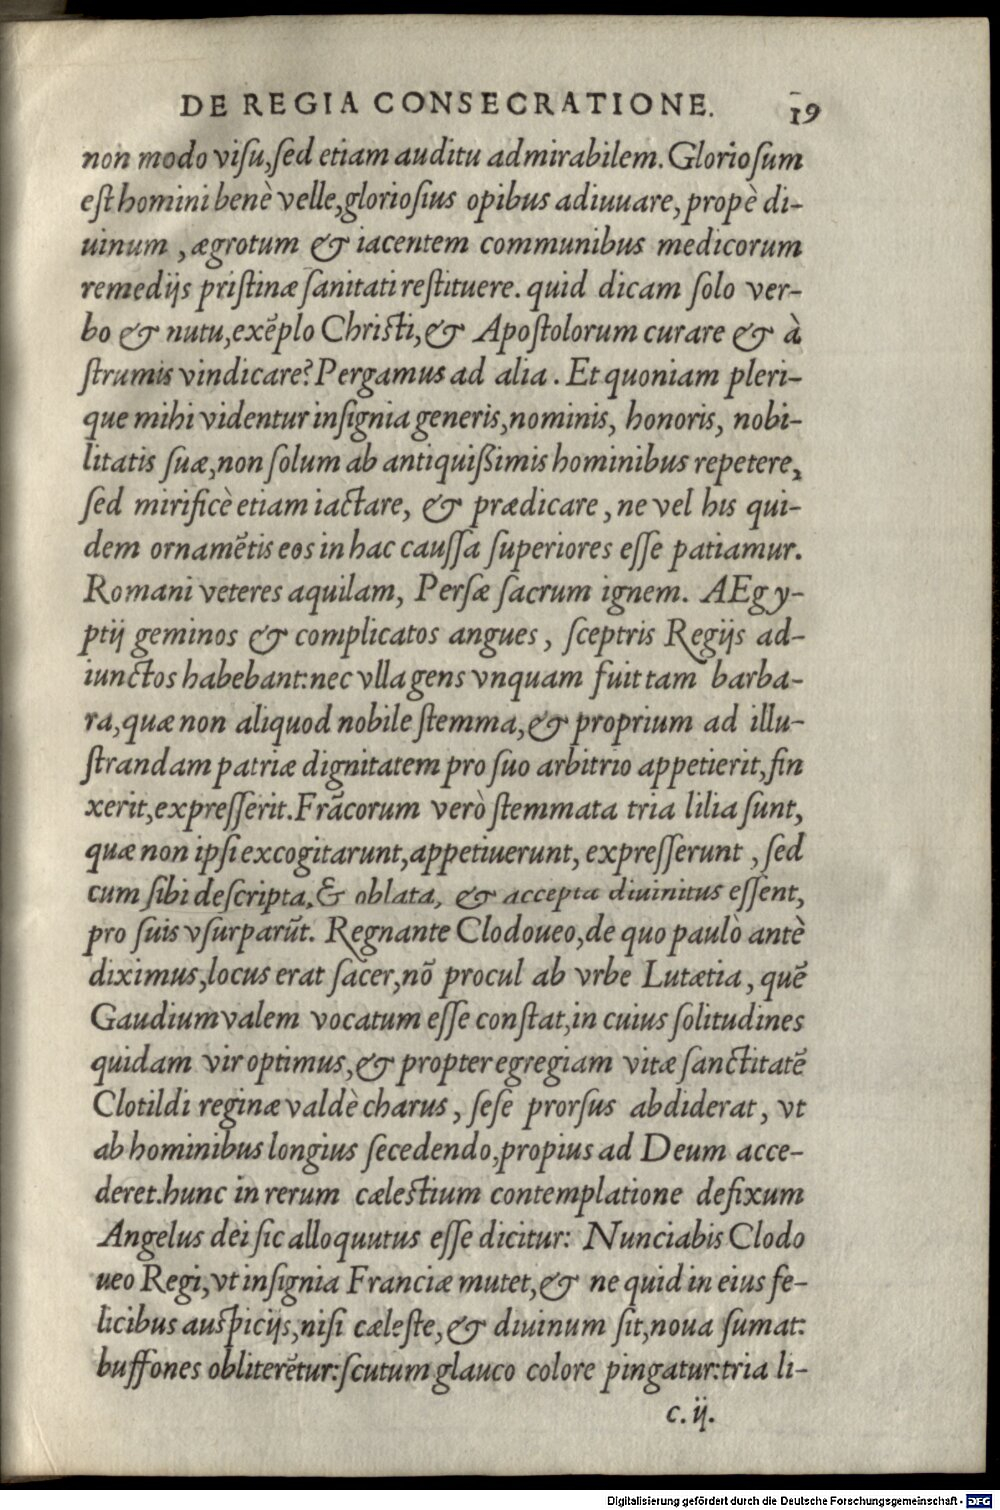 DE REGIA CONSECRATIONE. 19
non modo visu, sed etiam auditu admirabilem. Gloriosum
est homini benè velle, gloriosius opibus adiuuare, propè di-
uinum, ægrotum & iacentem communibus medicorum
remedijs pristinæ sanitati restituere. quid dicam solo ver-
bo & nutu, exēplo Christi, & Apostolorum curare & à
strumis vindicare? Pergamus ad alia. Et quoniam pleri-
que mihi videntur insignia generis, nominis, honoris, nobi-
litatis suæ, non solum ab antiquißimis hominibus repetere,
sed mirificè etiam iactare, & prædicare, ne vel his qui-
dem ornamētis eos in hac caussa superiores esse patiamur.
Romani veteres aquilam, Persæ sacrum ignem. AEgy-
ptij geminos & complicatos angues, sceptris Regijs ad-
iunctos habebant: nec vlla gens vnquam fuit tam barba-
ra, quæ non aliquod nobile stemma, & proprium ad illu-
strandam patriæ dignitatem pro suo arbitrio appetierit, fin
xerit, expresserit. Frācorum verò stemmata tria lilia sunt,
quæ non ipsi excogitarunt, appetiuerunt, expresserunt, sed
cum sibi descripta, & oblata, & accepta diuinitus essent,
pro suis vsurparūt. Regnante Clodoueo, de quo paulò antè
diximus, locus erat sacer, nō procul ab vrbe Lutætia, quē
Gaudiumvalem vocatum esse constat, in cuius solitudines
quidam vir optimus, & propter egregiam vitæ sanctitatē
Clotildi reginæ valdè charus, sese prorsus abdiderat, vt
ab hominibus longius secedendo, propius ad Deum acce-
deret. hunc in rerum cælestium contemplatione defixum
Angelus dei sic alloquutus esse dicitur: Nunciabis Clodo
ueo Regi, vt insignia Franciæ mutet, & ne quid in eius fe-
licibus auspicijs, nisi cæleste, & diuinum sit, noua sumat:
buffones obliterētur: scutum glauco colore pingatur: tria li-
c. ij.
Digitalisierung gefördert durch die Deutsche Forschungsgemeinschaft - DFG